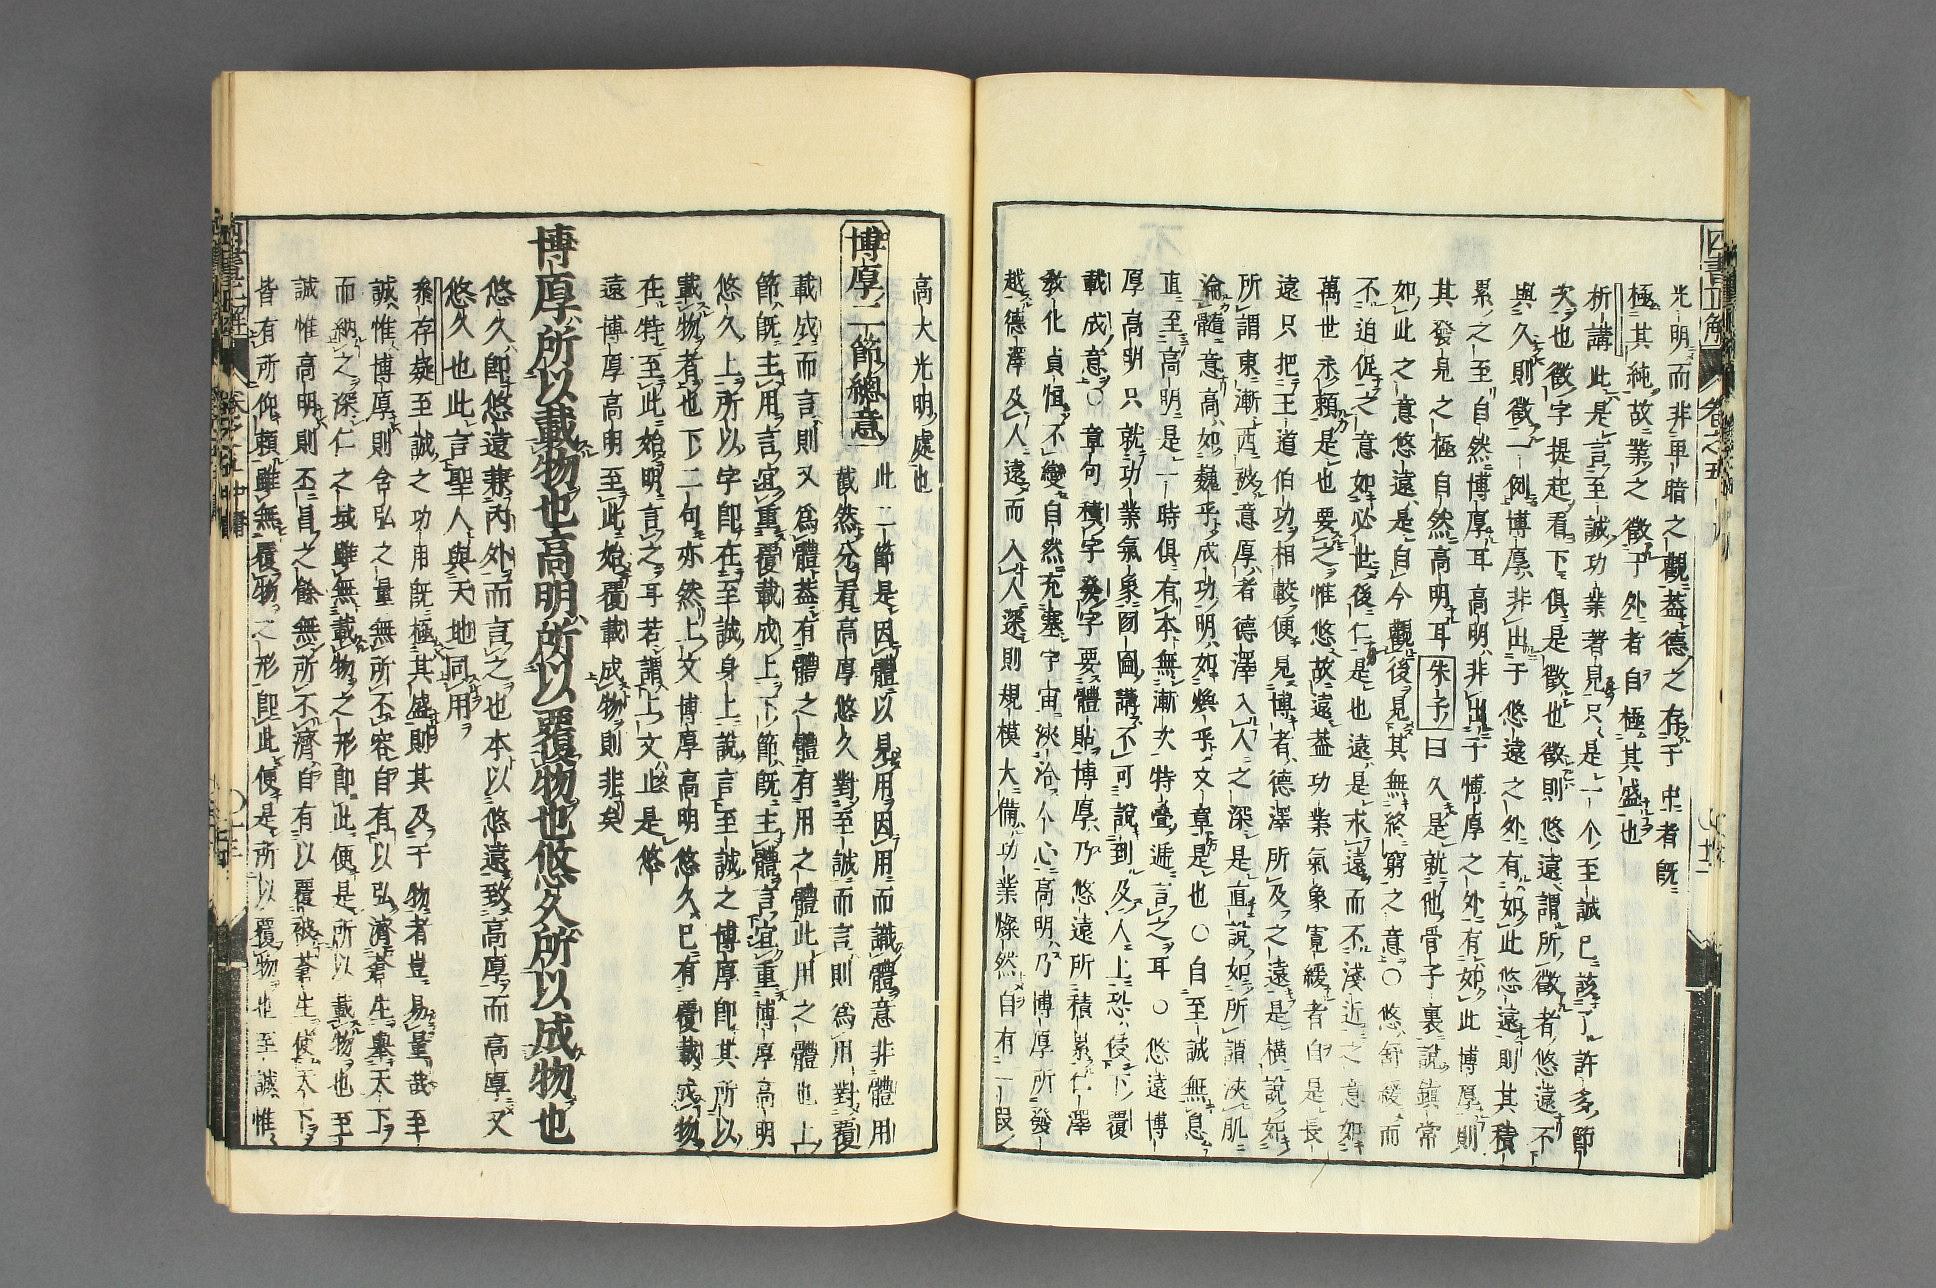 光明而非卑暗之觀蓋德之存于中者既
極其純故業之徵于外者自極其盛也
析講此是言至誠功業著見只是一个至誠已該了許多節
次也徵字提起看下俱是徵也徵則悠遠謂所徵者悠遠不
與久則徵一例博厚非出于悠遠之外有如此悠遠則其積
累之至自然博厚耳高明非出于博厚之外有如此博厚則
其發見之極自然高明耳朱子曰久是就他骨子裏說鎮常
如此之意悠遠是自今觀後見其無終窮之意○悠舒緩而
不迫促之意如必世後仁是也遠是求遠而不淺近之意如
萬世永賴是也要之惟悠故遠蓋功業氣象寬緩者自是長
遠只把王道伯功相較便見博者德澤所及之遠是橫說如
所謂東漸西被意厚者德澤入人之深是直說如所謂浹肌
淪髓意高如巍乎成功明如煥乎文章是也○自至誠無息
直至高明是一時俱有本無漸次特疊遞言之耳○悠遠博
厚高明只就功業氣象囫圇講不可說到及人上恐侵下覆
載成意○章句積字發字要體貼博厚乃悠遠所積累仁澤
教化貞恒不變自然充塞宇宙浹洽人心高明乃博厚所發
越德澤及人遠而入人深則規模大備功業燦然自有一段
高大光明處也
博厚二節總意
此二節是因體以見用因用而識體意非體用
截然分看高厚悠久對至誠而言則爲用對覆
載成而言則又爲體蓋有體之體有用之體此用之體也上
節既主用言宜重覆載成上下節既主體言宜重博厚高明
悠久上所以字即在至誠身上說言至誠之博厚即其所以
載物者也下二句亦然上文博厚高明悠久已有覆載成物
在特至此始明言之耳若謂上文止是悠
遠博厚高明至此始覆載成物則非矣
博厚所以載物也高明所以覆物也悠久所以成物也
悠久即悠遠兼內外而言之也本以悠遠致高厚而高厚又
悠久也此言聖人與天地同用
叅存疑至誠之功用既極其盛則其及于物者豈易量哉至
誠惟博厚則含弘之量無所不容自有以弘濟蒼生舉天下
而納之深仁之域雖無載物之形即此便是所以載物也至
誠惟高明則丕冒之餘無所不濟自有以覆被蒼生使天下
皆有所仰賴雖無覆物之形即此便是所以覆物也至誠惟
四書正解
卷之五